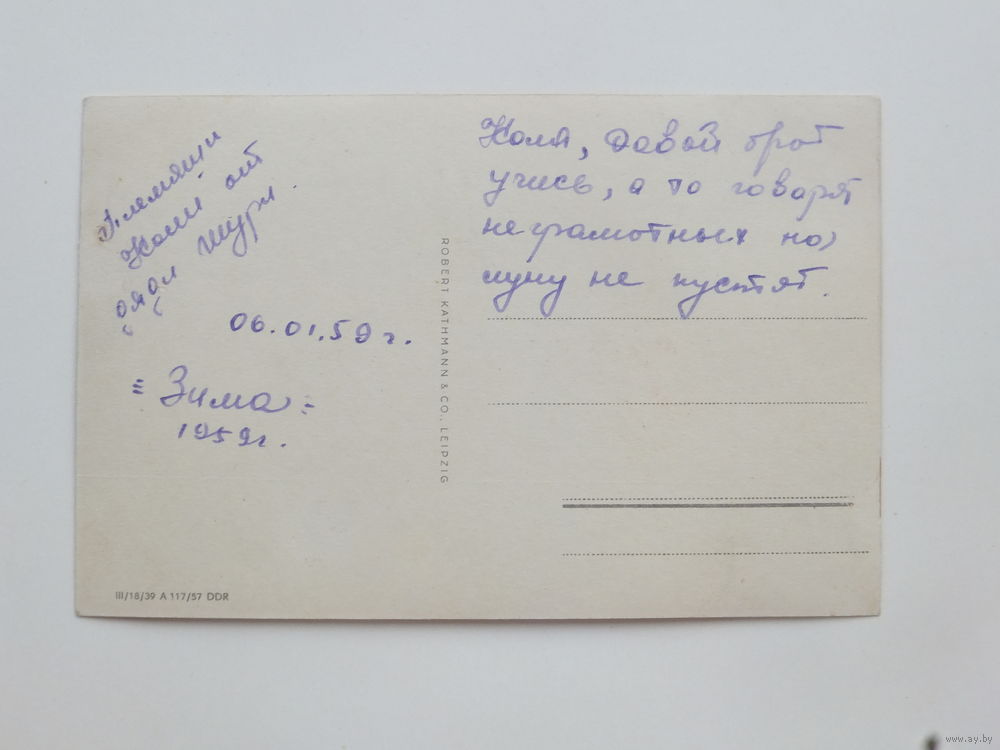 Племянци
Коли от
дяди Шуры.
06.01.59 г.
= Зима =
1959г.
III/18/39 A 117/57 DDR
ROBERT KATHMANN & CO., LEIPZIG
Коля, давай брат
учись, а то говорят
неграмотных на
луну не пустят.
www.ay.by